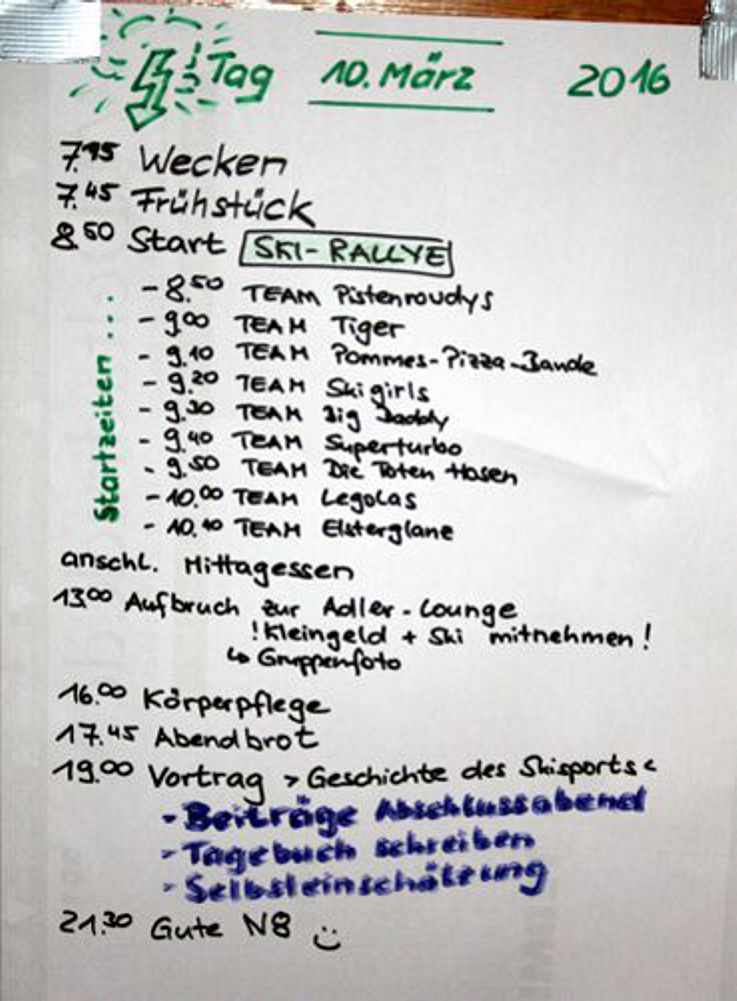 Tag 10. März 2016
7.15 Wecken
7.45 Frühstück
8.50 Start SKI-RALLYE
Startzeiten ...
- 8.50 TEAM Pistenroudys
- 9.00 TEAM Tiger
- 9.10 TEAM Pommes-Pizza-Bande
- 9.20 TEAM Skigirls
- 9.30 TEAM Big Daddy
- 9.40 TEAM Superturbo
- 9.50 TEAM Die Toten Hosen
- 10.00 TEAM Legolas
- 10.10 TEAM Elsterglane
anschl. Mittagessen
13.00 Aufbruch zur Adler-Lounge
! Kleingeld + Ski mitnehmen !
↳ Gruppenfoto
16.00 Körperpflege
17.45 Abendbrot
19.00 Vortrag > Geschichte des Skisports <
- Beiträge Abschlussabend
- Tagebuch schreiben
- Selbsteinschätzung
21.30 Gute N8 :)